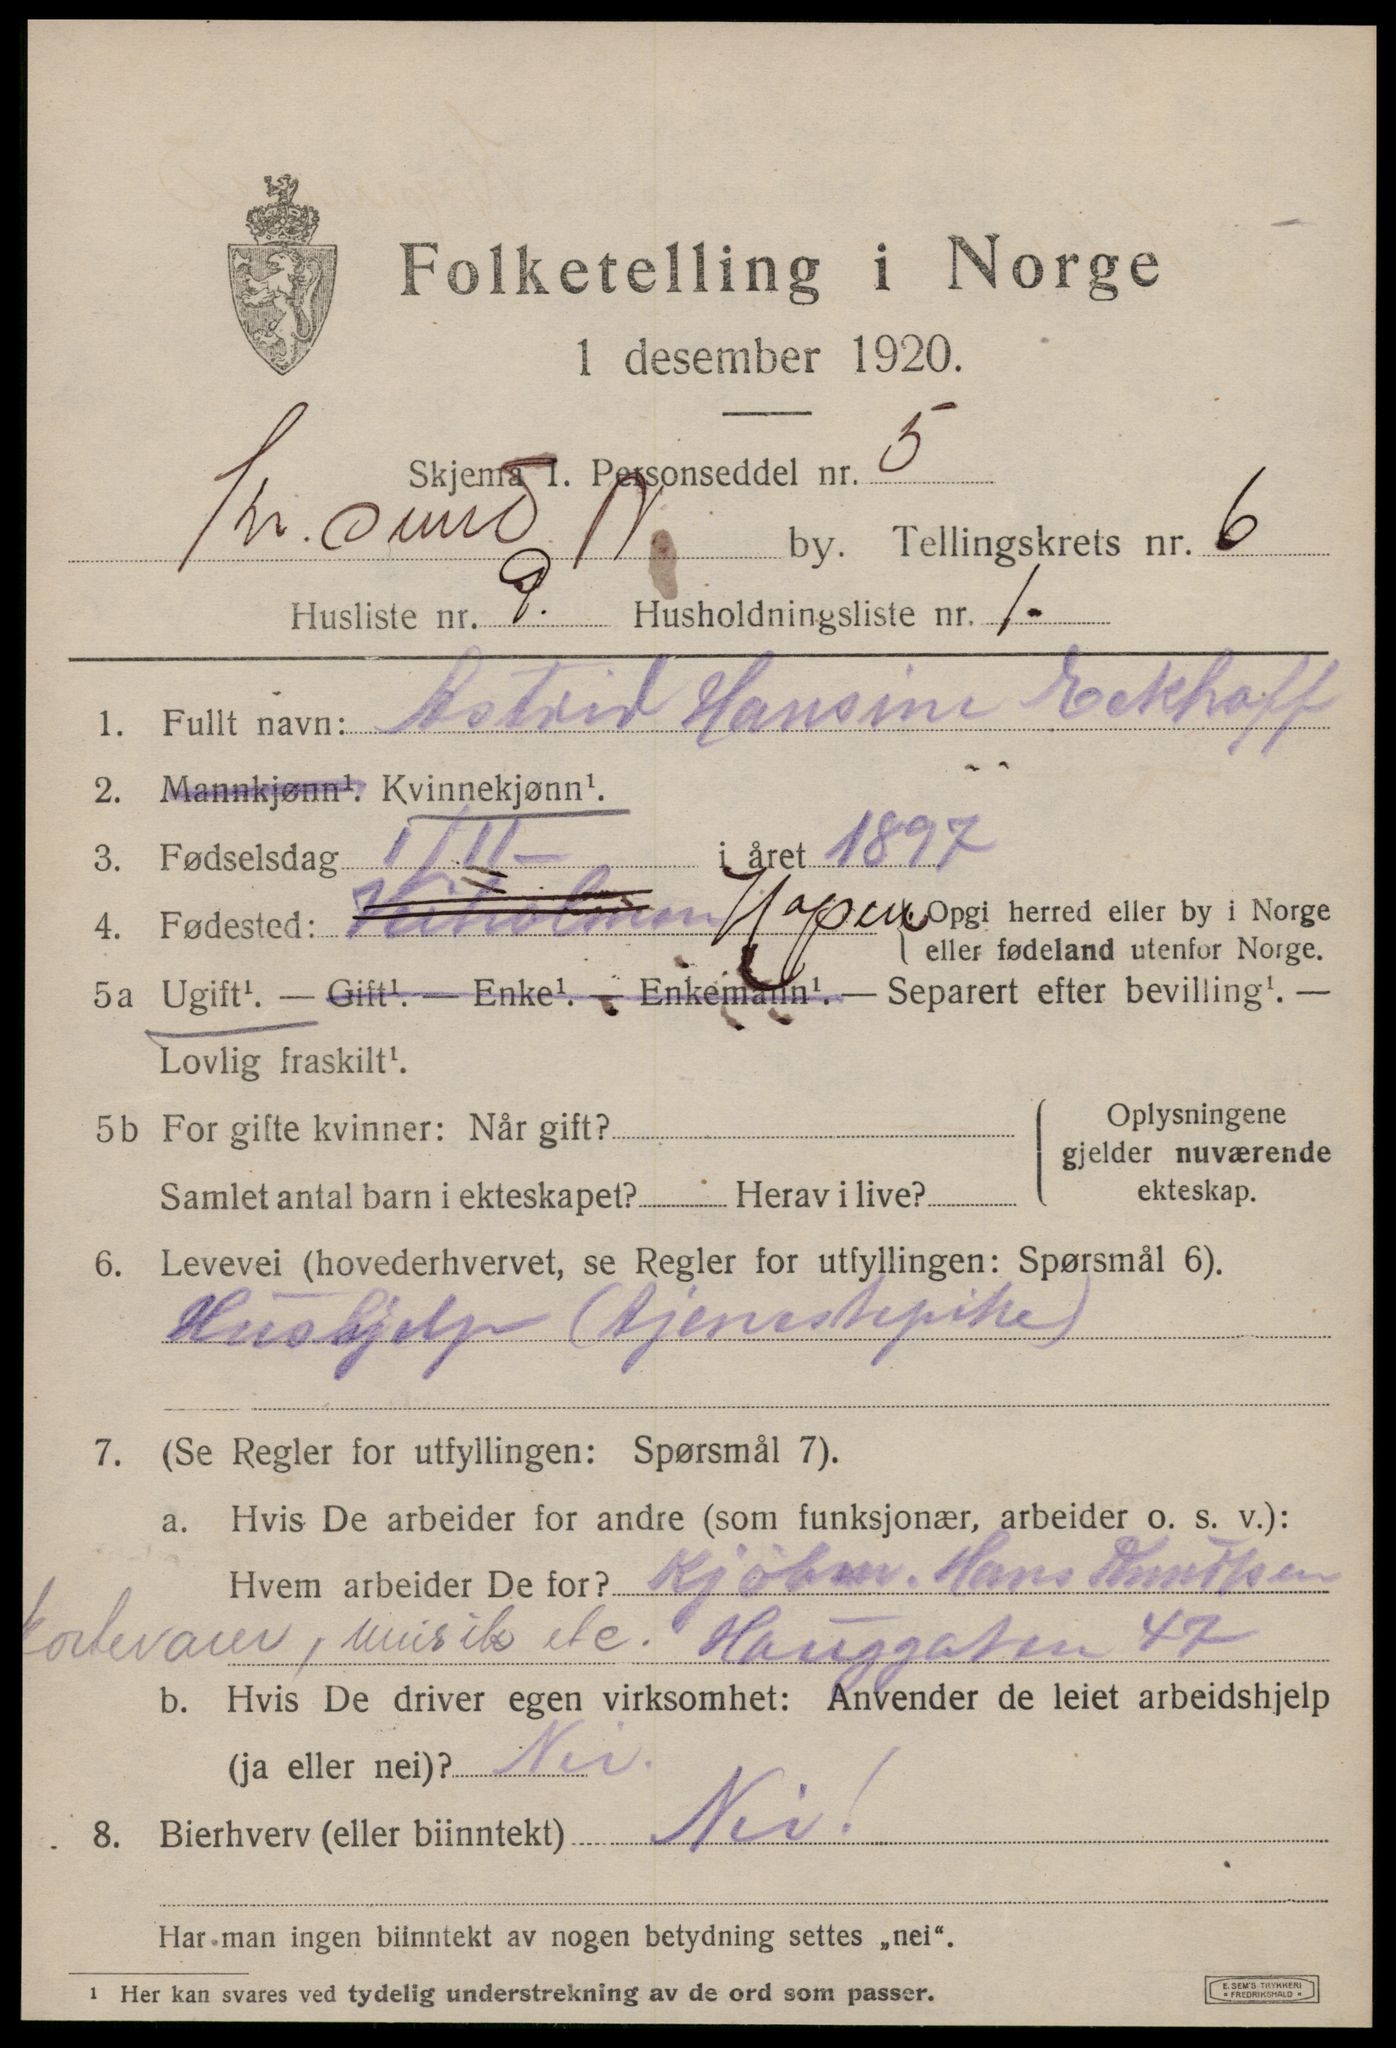 Folketelling i Norge
1 desember 1920.
Skjema 1. Personseddel nr. 5
Kr.sund N. by. Tellingskrets nr. 6
Husliste nr. 9. Husholdningsliste nr. 1.
1. Fullt navn: Astrid Hansine Eckhoff
2. Mannkjønn¹. Kvinnekjønn¹.
3. Fødselsdag 1/11- i året 1897
4. Fødested: Veiholmen Hopen Opgi herred eller by i Norge
eller fødeland utenfor Norge.
5a Ugift¹. — Gift¹. — Enke¹. — Enkemann¹. — Separert efter bevilling¹. —
Lovlig fraskilt¹.
5b For gifte kvinner: Når gift?
Samlet antal barn i ekteskapet? Herav i live?
Oplysningene
gjelder nuværende
ekteskap.
6. Levevei (hovederhvervet, se Regler for utfyllingen: Spørsmål 6).
Hushjelp (tjenestepike)
7. (Se Regler for utfyllingen: Spørsmål 7).
a. Hvis De arbeider for andre (som funksjonær, arbeider o. s. v.):
Hvem arbeider De for? Kjöbm. Hans Knudtsen
kortevarer, musik etc. Hauggaten 47
b. Hvis De driver egen virksomhet: Anvender de leiet arbeidshjelp
(ja eller nei)? Nei.
8. Bierhverv (eller biinntekt) Nei!
Har man ingen biinntekt av nogen betydning settes „nei“.
1 Her kan svares ved tydelig understrekning av de ord som passer.
E. SEM'S TRYKKERI
* FREDRIKSHALD *